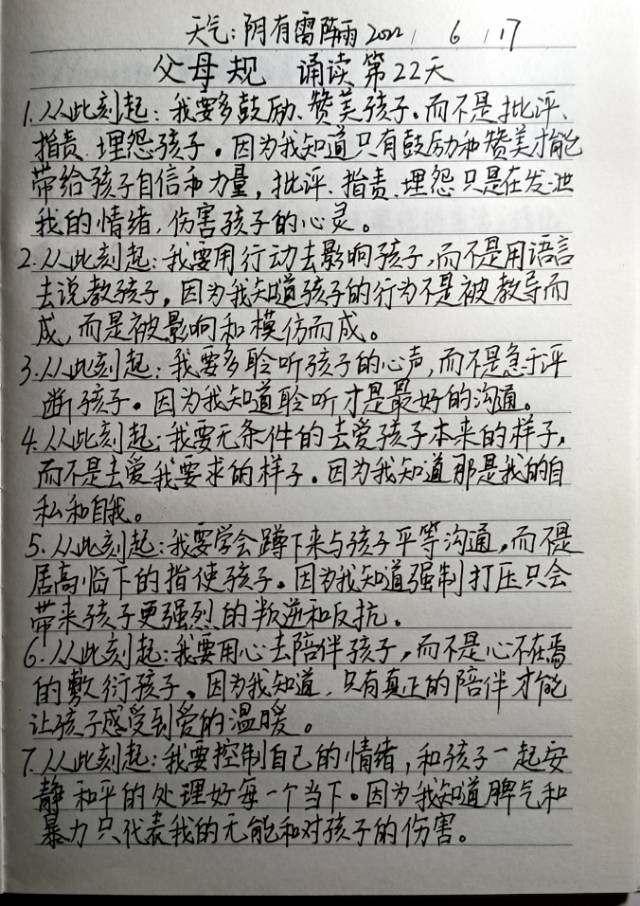 天气:阴有雷阵雨2022/6/17
父母规 诵读第22天
1.从此刻起:我要多鼓励、赞美孩子。而不是批评、
指责、埋怨孩子。因为我知道只有鼓励和赞美才能
带给孩子自信和力量,批评、指责、埋怨只是在发泄
我的情绪,伤害孩子的心灵。
2.从此刻起:我要用行动去影响孩子,而不是用语言
去说教孩子,因为我知道孩子的行为不是被教导而
成,而是被影响和模仿而成。
3.从此刻起:我要多聆听孩子的心声,而不是急于评
断孩子。因为我知道聆听才是最好的沟通。
4.从此刻起:我要无条件的去爱孩子本来的样子,
而不是去爱我要求的样子。因为我知道那是我的自
私和自我。
5.从此刻起:我要学会蹲下来与孩子平等沟通,而不是
居高临下的指使孩子。因为我知道强制打压只会
带来孩子更强烈的叛逆和反抗。
6.从此刻起:我要用心去陪伴孩子,而不是心不在焉
的敷衍孩子。因为我知道,只有真正的陪伴才能
让孩子感受到爱的温暖。
7.从此刻起:我要控制自己的情绪,和孩子一起安
静和平的处理好每一个当下。因为我知道脾气和
暴力只代表我的无能和对孩子的伤害。